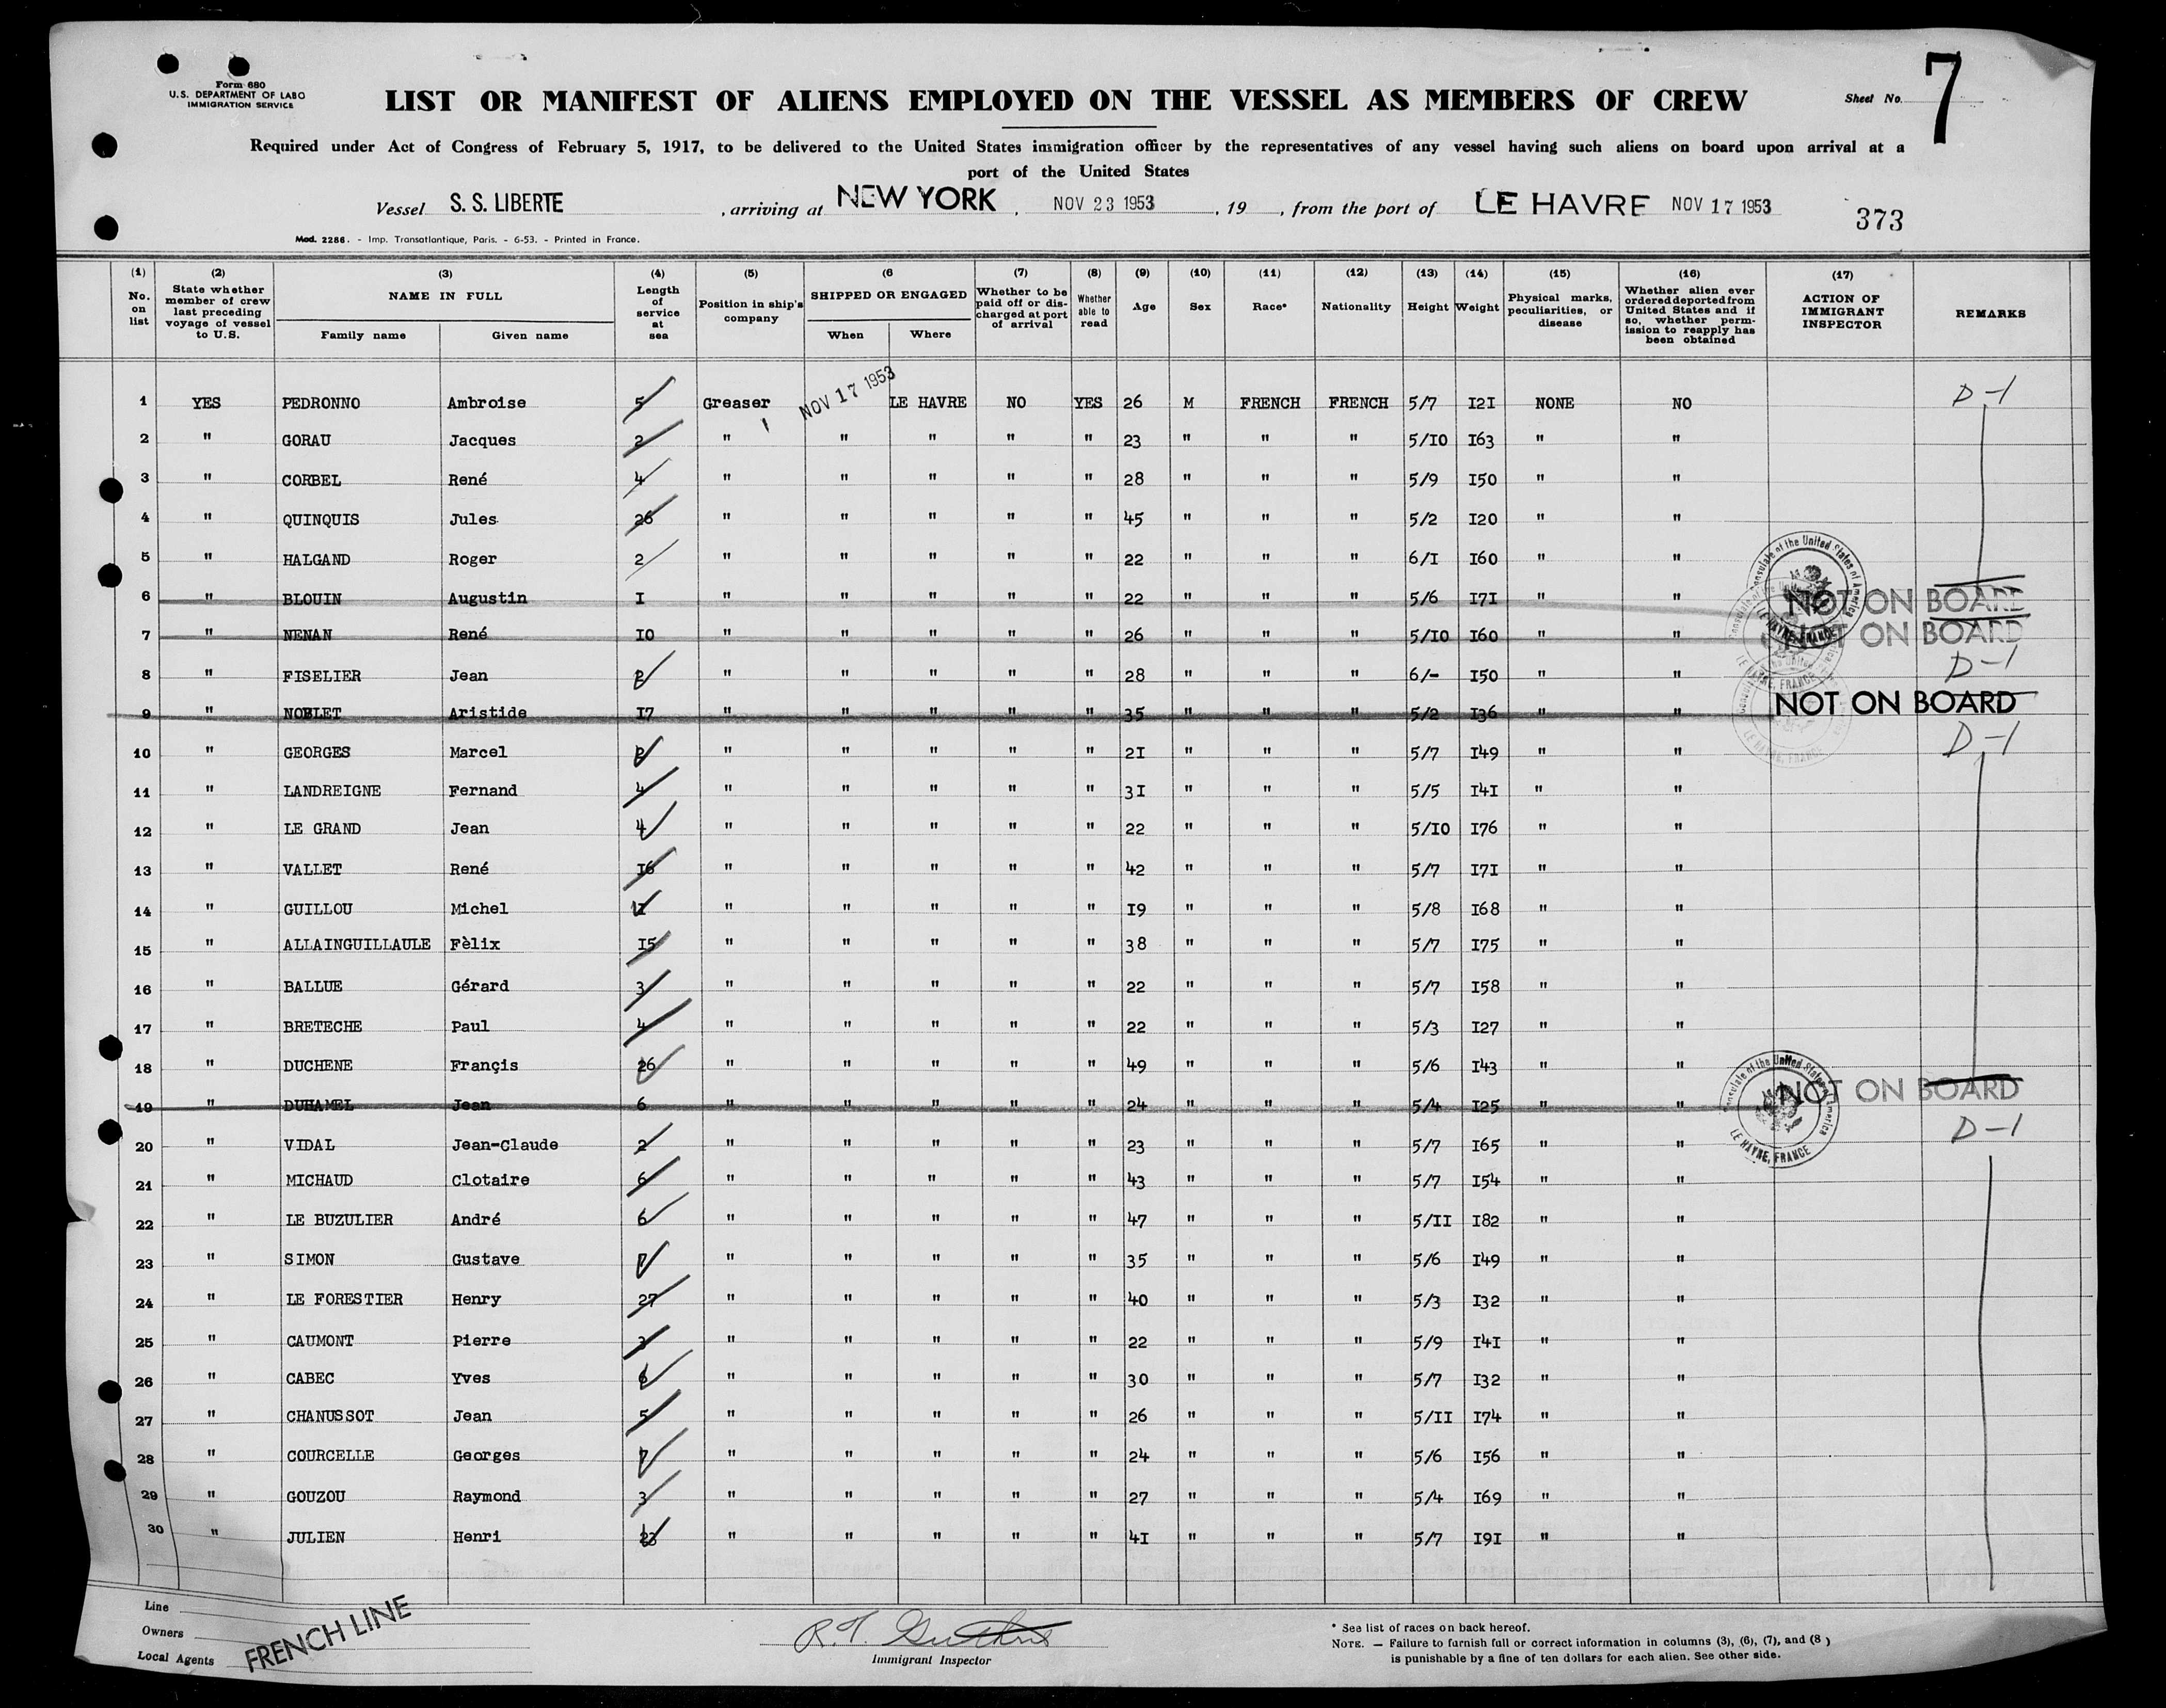 Form 680
U.S. DEPARTMENT OF LABO
IMMIGRATION SERVICE
LIST OR MANIFEST OF ALIENS EMPLOYED ON THE VESSEL AS MEMBERS OF CREW
Sheet No. 7
Required under Act of Congress of February 5, 1917, to be delivered to the United States immigration officer by the representatives of any vessel having such aliens on board upon arrival at a
port of the United States
Vessel S. S. LIBERTE , arriving at NEW YORK , NOV 23 1953 , 19 , from the port of LE HAVRE NOV 17 1953
373
Mod. 2286. - Imp. Transatlantique, Paris. - 6-53. - Printed in France.
(1) No. on list
(2) State whether member of crew last preceding voyage of vessel to U.S.
(3) NAME IN FULL Family name Given name
(4) Length of service at sea
(5) Position in ship's company
(6 SHIPPED OR ENGAGED When Where
(7) Whether to be paid off or discharged at port of arrival
(8) Whether able to read
(9) Age
(10) Sex
(11) Race*
(12) Nationality
(13) Height
(14) Weight
(15) Physical marks, peculiarities, or disease
(16) Whether alien ever ordered deported from United States and if so, whether permission to reapply has been obtained
(17) ACTION OF IMMIGRANT INSPECTOR
REMARKS
1 YES PEDRONNO Ambroise 5 Greaser NOV 17 1953 LE HAVRE NO YES 26 M FRENCH FRENCH 5/7 I2I NONE NO D-1
2 " GORAU Jacques 2 " " " " " 23 " " " 5/IO I63 " "
3 " CORBEL René 4 " " " " " 28 " " " 5/9 I50 " "
4 " QUINQUIS Jules 26 " " " " " 45 " " " 5/2 I20 " "
5 " HALGAND Roger 2 " " " " " 22 " " " 6/I I60 " "
6 " BLOUIN Augustin I " " " " " 22 " " " 5/6 I7I " " NOT ON BOARD
7 " NENAN René IO " " " " " 26 " " " 5/IO I60 " " NOT ON BOARD
8 " FISELIER Jean 2 " " " " " 28 " " " 6/- I50 " " D-1
9 " NOBLET Aristide I7 " " " " " 35 " " " 5/2 I36 " " NOT ON BOARD
10 " GEORGES Marcel 2 " " " " " 2I " " " 5/7 I49 " " D-1
11 " LANDREIGNE Fernand 4 " " " " " 3I " " " 5/5 I4I " "
12 " LE GRAND Jean 4 " " " " " 22 " " " 5/IO I76 " "
13 " VALLET René I6 " " " " " 42 " " " 5/7 I7I " "
14 " GUILLOU Michel " " " " " I9 " " " 5/8 I68 " "
15 " ALLAINGUILLAULE Fèlix I5 " " " " " 38 " " " 5/7 I75 " "
16 " BALLUE Gérard 3 " " " " " 22 " " " 5/7 I58 " "
17 " BRETECHE Paul 4 " " " " " 22 " " " 5/3 I27 " "
18 " DUCHENE Françis 26 " " " " " 49 " " " 5/6 I43 " "
19 " DUHAMEL Jean 6 " " " " " 24 " " " 5/4 I25 " " NOT ON BOARD
20 " VIDAL Jean-Claude 2 " " " " " 23 " " " 5/7 I65 " " D-1
21 " MICHAUD Clotaire 6 " " " " " 43 " " " 5/7 I54 " "
22 " LE BUZULIER André 6 " " " " " 47 " " " 5/II I82 " "
23 " SIMON Gustave 7 " " " " " 35 " " " 5/6 I49 " "
24 " LE FORESTIER Henry 27 " " " " " 40 " " " 5/3 I32 " "
25 " CAUMONT Pierre 3 " " " " " 22 " " " 5/9 I4I " "
26 " CABEC Yves 6 " " " " " 30 " " " 5/7 I32 " "
27 " CHANUSSOT Jean 5 " " " " " 26 " " " 5/II I74 " "
28 " COURCELLE Georges 7 " " " " " 24 " " " 5/6 I56 " "
29 " GOUZOU Raymond 3 " " " " " 27 " " " 5/4 I69 " "
30 " JULIEN Henri 23 " " " " " 4I " " " 5/7 I9I " "
Consulate of the United States of America
LE HAVRE, FRANCE
Consulate of the United States of America
LE HAVRE, FRANCE
Line
Owners
Local Agents
FRENCH LINE
R.T.
Immigrant Inspector
* See list of races on back hereof.
NOTE. — Failure to furnish full or correct information in columns (3), (6), (7), and (8 )
is punishable by a fine of ten dollars for each alien. See other side.